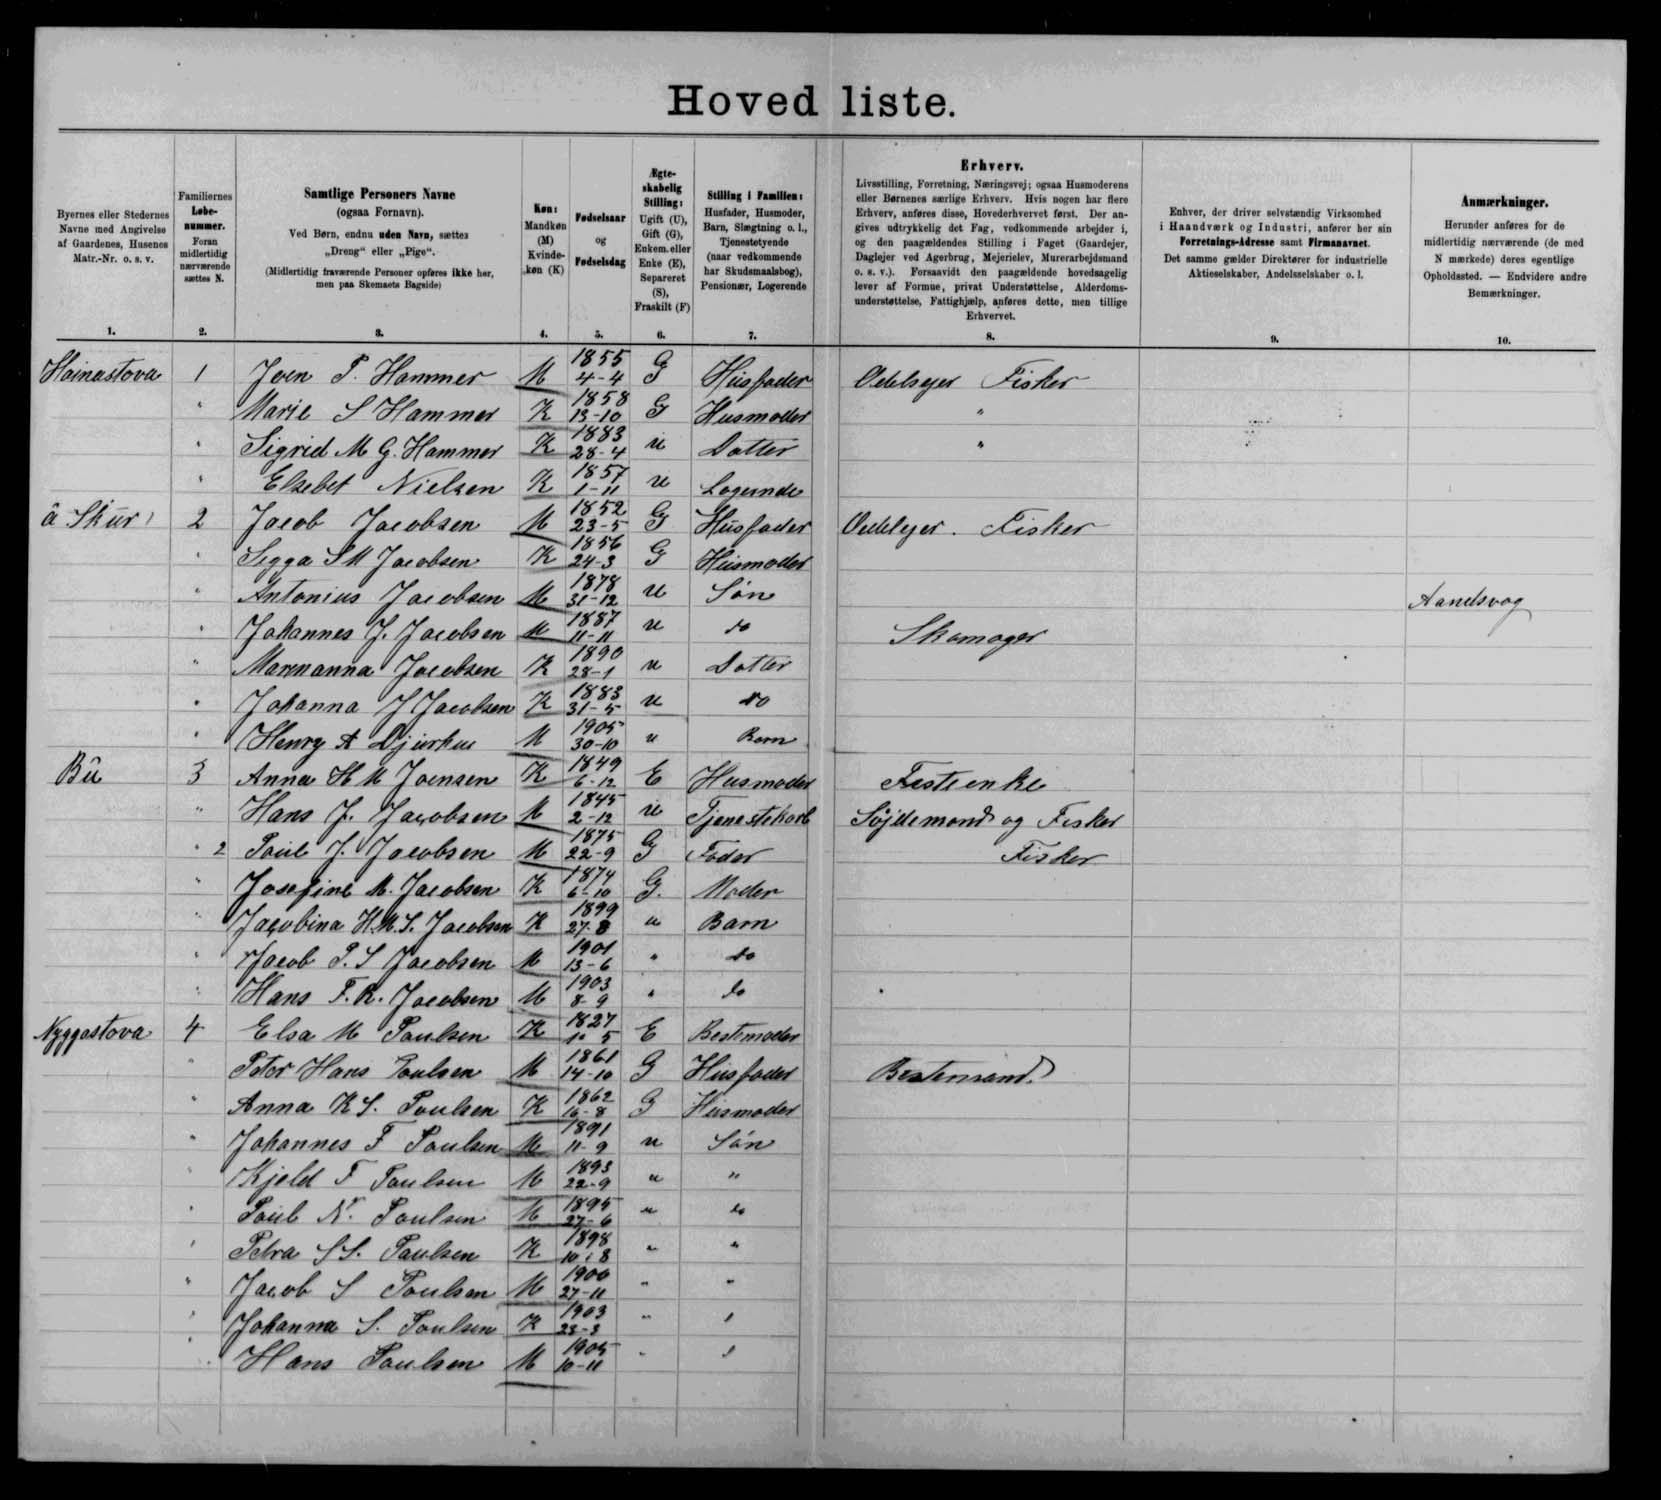 Hovedliste.
Byernes eller Stedernes
Navne med Angivelse
af Gaardenes, Husenes
Matr.-Nr. o. s. v.
1.
Familiernes
Løbe-
nummer.
Foran
midlertidig
nærværende
sættes N.
2.
Samtlige Personers Navne
(ogsaa Fornavn).
Ved Børn, endnu uden Navn, sættes
„Dreng“ eller „Pige“.
(Midlertidig fraværende Personer opføres ikke her,
men paa Skemaets Bagside)
3.
Køn:
Mandkøn
(M)
Kvinde-
køn (K)
4.
Fødselsaar
og
Fødselsdag
5.
Ægte-
skabelig
Stilling:
Ugift (U),
Gift (G),
Enkem. eller
Enke (E),
Separeret
(S),
Fraskilt (F)
6.
Stilling i Familien:
Husfader, Husmoder,
Barn, Slægtning o. l.,
Tjenestetyende
(naar vedkommende
har Skudsmaalsbog),
Pensionær, Logerende
7.
Erhverv.
Livsstilling, Forretning, Næringsvej; ogsaa Husmoderens
eller Børnenes særlige Erhverv. Hvis nogen har flere
Erhverv, anføres disse, Hovederhvervet først. Der an-
gives udtrykkelig det Fag, vedkommende arbejder i,
og den paagældendes Stilling i Faget (Gaardejer,
Daglejer ved Agerbrug, Mejerielev, Murerarbejdsmand
o. s. v.). Forsaavidt den paagældende hovedsagelig
lever af Formue, privat Understøttelse, Alderdoms-
understøttelse, Fattighjælp, anføres dette, men tillige
Erhvervet.
8.
Enhver, der driver selvstændig Virksomhed
i Haandværk og Industri, anfører her sin
Forretnings-Adresse samt Firmanavnet.
Det samme gælder Direktører for industrielle
Aktieselskaber, Andelsselskaber o. l.
9.
Anmærkninger.
Herunder anføres for de
midlertidig nærværende (de med
N mærkede) deres egentlige
Opholdssted. — Endvidere andre
Bemærkninger.
10.
Hoinastova 1 Joen P. Hammer M 1855 4-4 G Husfader Odelsejer Fisker
" Marie S Hammer K 1858 13-10 G Husmoder "
" Sigrid M G. Hammer K 1883 28-4 u Datter "
" Elsebet Nielsen K 1857 1-11 u Logernde
â Skur 2 Jacob Jacobsen M 1852 23-5 G Husfader Odelsejer. Fisker
" Sigga S M Jacobsen K 1856 24-3 G Husmoder
" Antonius Jacobsen M 1878 31-12 u Søn Aandsvag
" Johannes J. Jacobsen M 1887 11-11 u do Skomager
" Marenanna Jacobsen K 1890 28-1 u Datter
" Johanna J Jacobsen K 1883 31-5 u do
" Henry A Djurhus M 1905 30-10 u Barn
Bû 3 Anna H M Joensen K 1849 6-12 E Husmoder Festeenke
" Hans J. Jacobsen M 1845 2-12 u Tjenestekarl Søjdemand og Fisker
" 2 Poul J. Jacobsen M 1875 22-9 G Fader Fisker
" Josefine M. Jacobsen K 1874 6-10 G. Moder
" Jacobina H.M.S. Jacobsen K 1899 27-8 u Barn
" Jacob P. S Jacobsen M 1901 13-6 " do
" Hans F. R. Jacobsen M 1903 8-9 " do
Nyggastova 4 Elsa M Poulsen K 1827 1-5 E Bestemoder
" Peter Hans Poulsen M 1861 14-10 G Husfader Bestemand
" Anna K S. Poulsen K 1862 16-8 G Husmoder
" Johannes F Poulsen M 1891 11-9 u Søn
" Kjeld F Poulsen M 1893 22-9 u "
" Poul N. Poulsen M 1895 27-6 u do
" Petra S S. Poulsen K 1898 10-8 " "
" Jacob S Poulsen M 1900 27-11 " "
" Johanna S. Poulsen K 1903 23-3 " "
" Hans Poulsen M 1905 10-11 " "